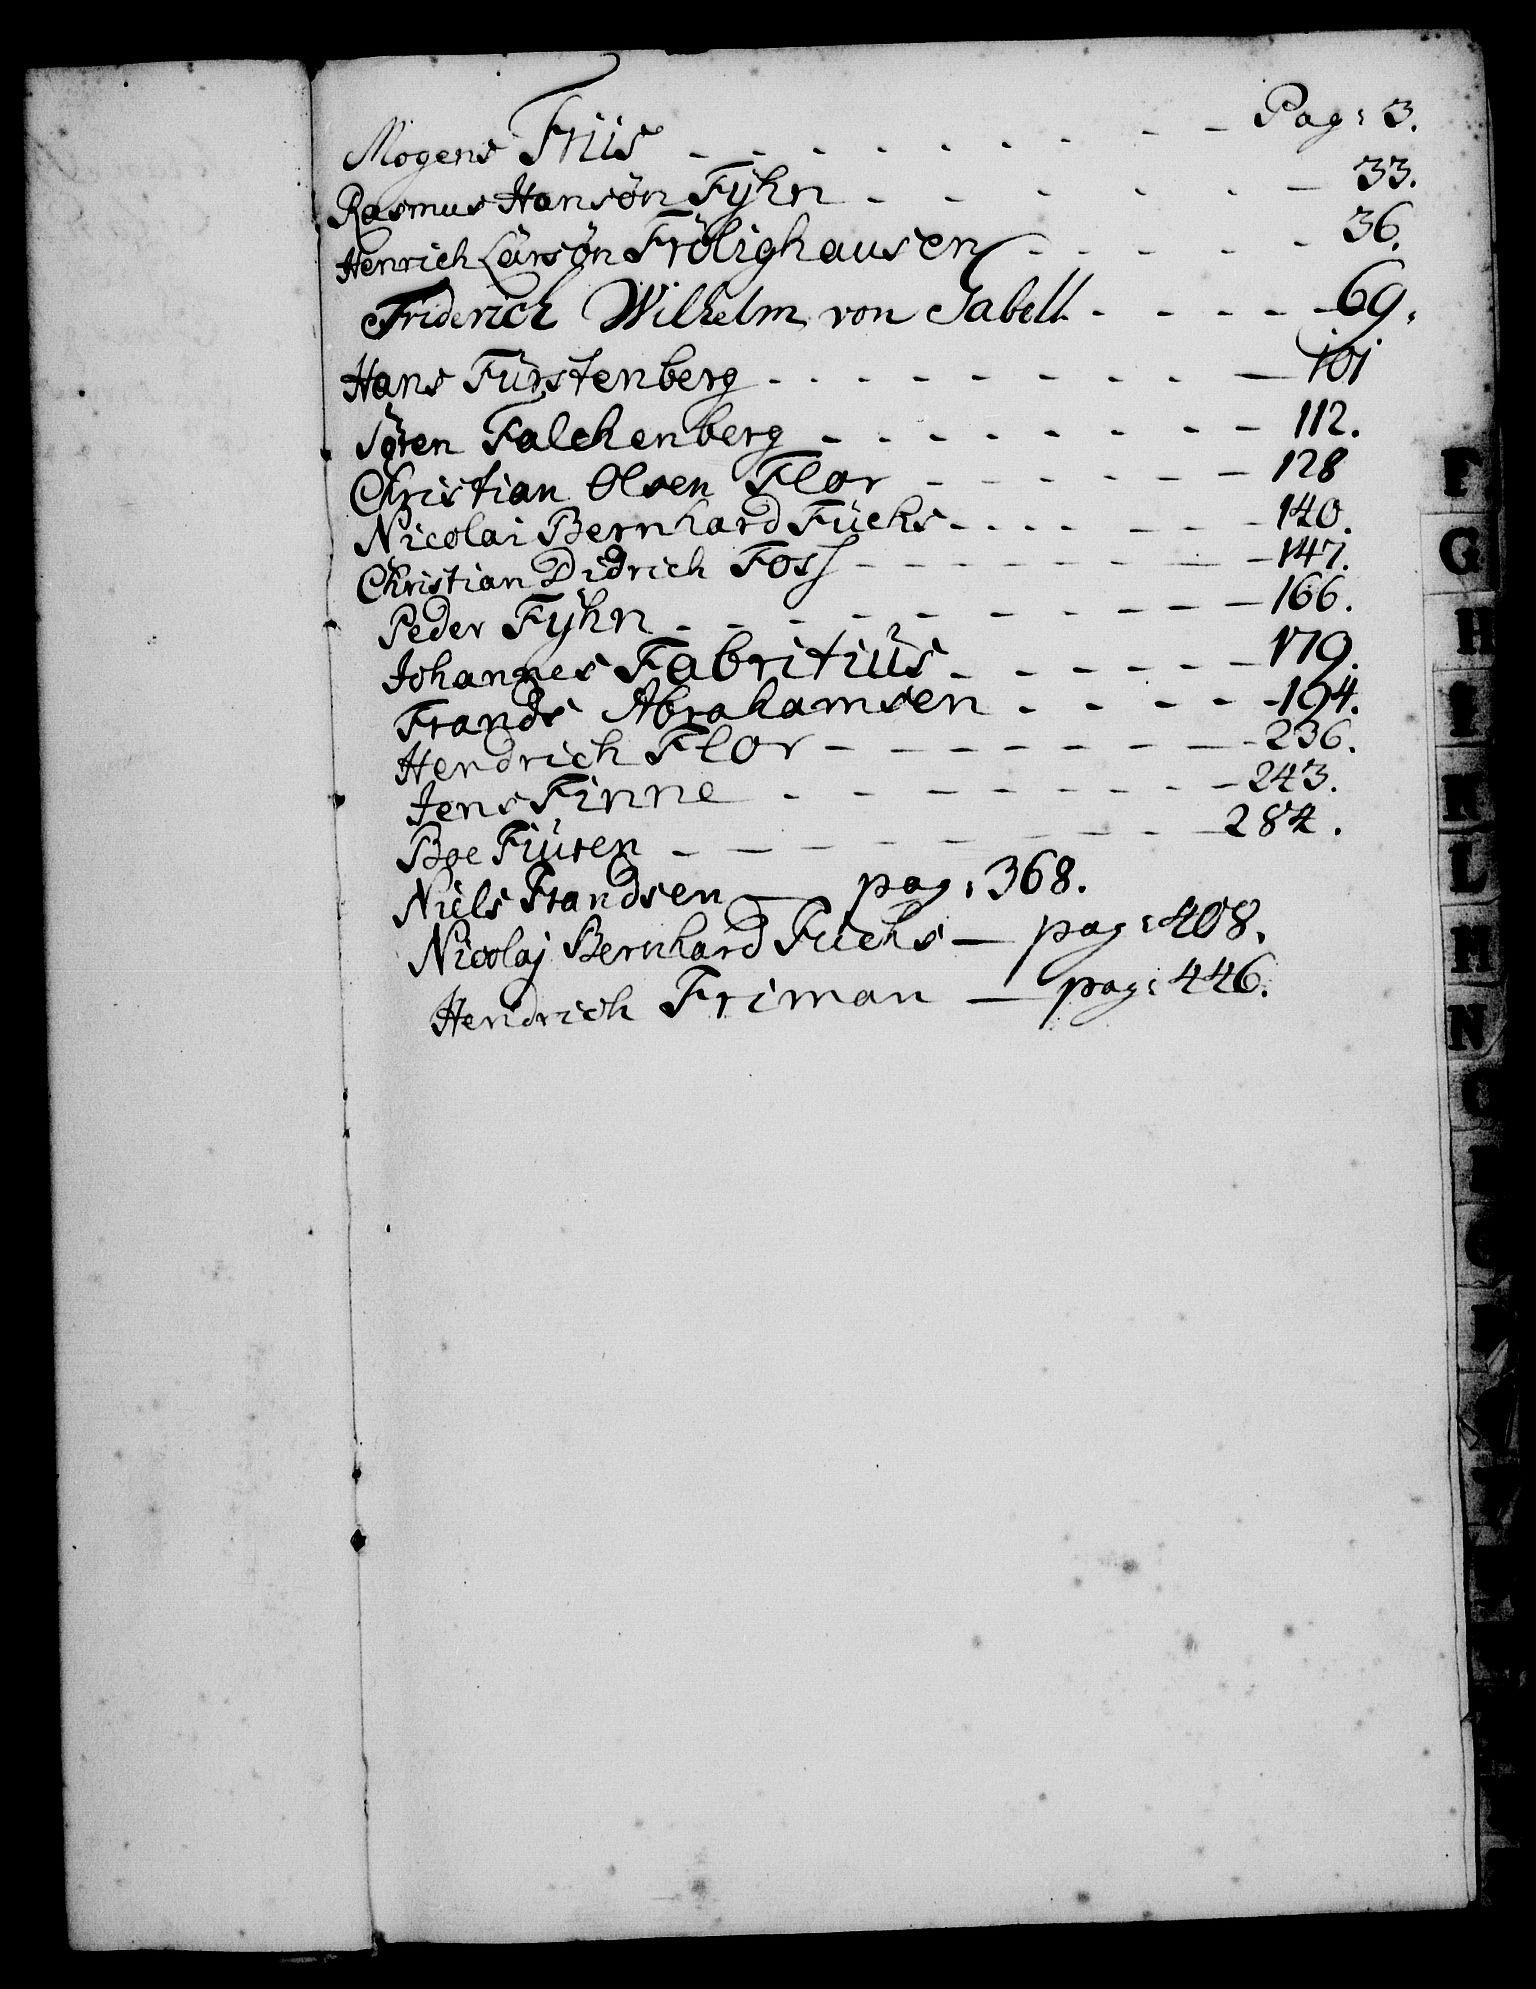 Mogens Friis - - - - - - - - - Pag: 3.
Rasmus Hansøn Fÿhn - - - - - - 33.
Henrich Larsøn Frölighausen - - - - - 36.
Friderich Wilhelm von Sabell - - - - - 69.
Hans Fürstenberg - - - - - - - - - 101
Søren Falchenberg - - - - - - - - 112.
Christian Olsen Flor - - - - - - 128
Nicolai Bernhard Füchs - - - - - - - 140.
Christian Didrich Foss - - - - - - - - 147.
Peder Fÿhn - - - - - - - - - - 166.
Johannes Fabritiüs - - - - - - 179.
Frands Abrahamsen - - - - - 194.
Hendrich Flor - - - - - - - - 236.
Jens Finne - - - - - - - - - 243.
Boe Fiüsen - - - - - - - - 284.
Niels Frandsen — pag: 368.
Nicolaj Bernhard Fuchs — pag: 408.
Hendrich Friman — pag: 446.
F
G
H
L
M
N